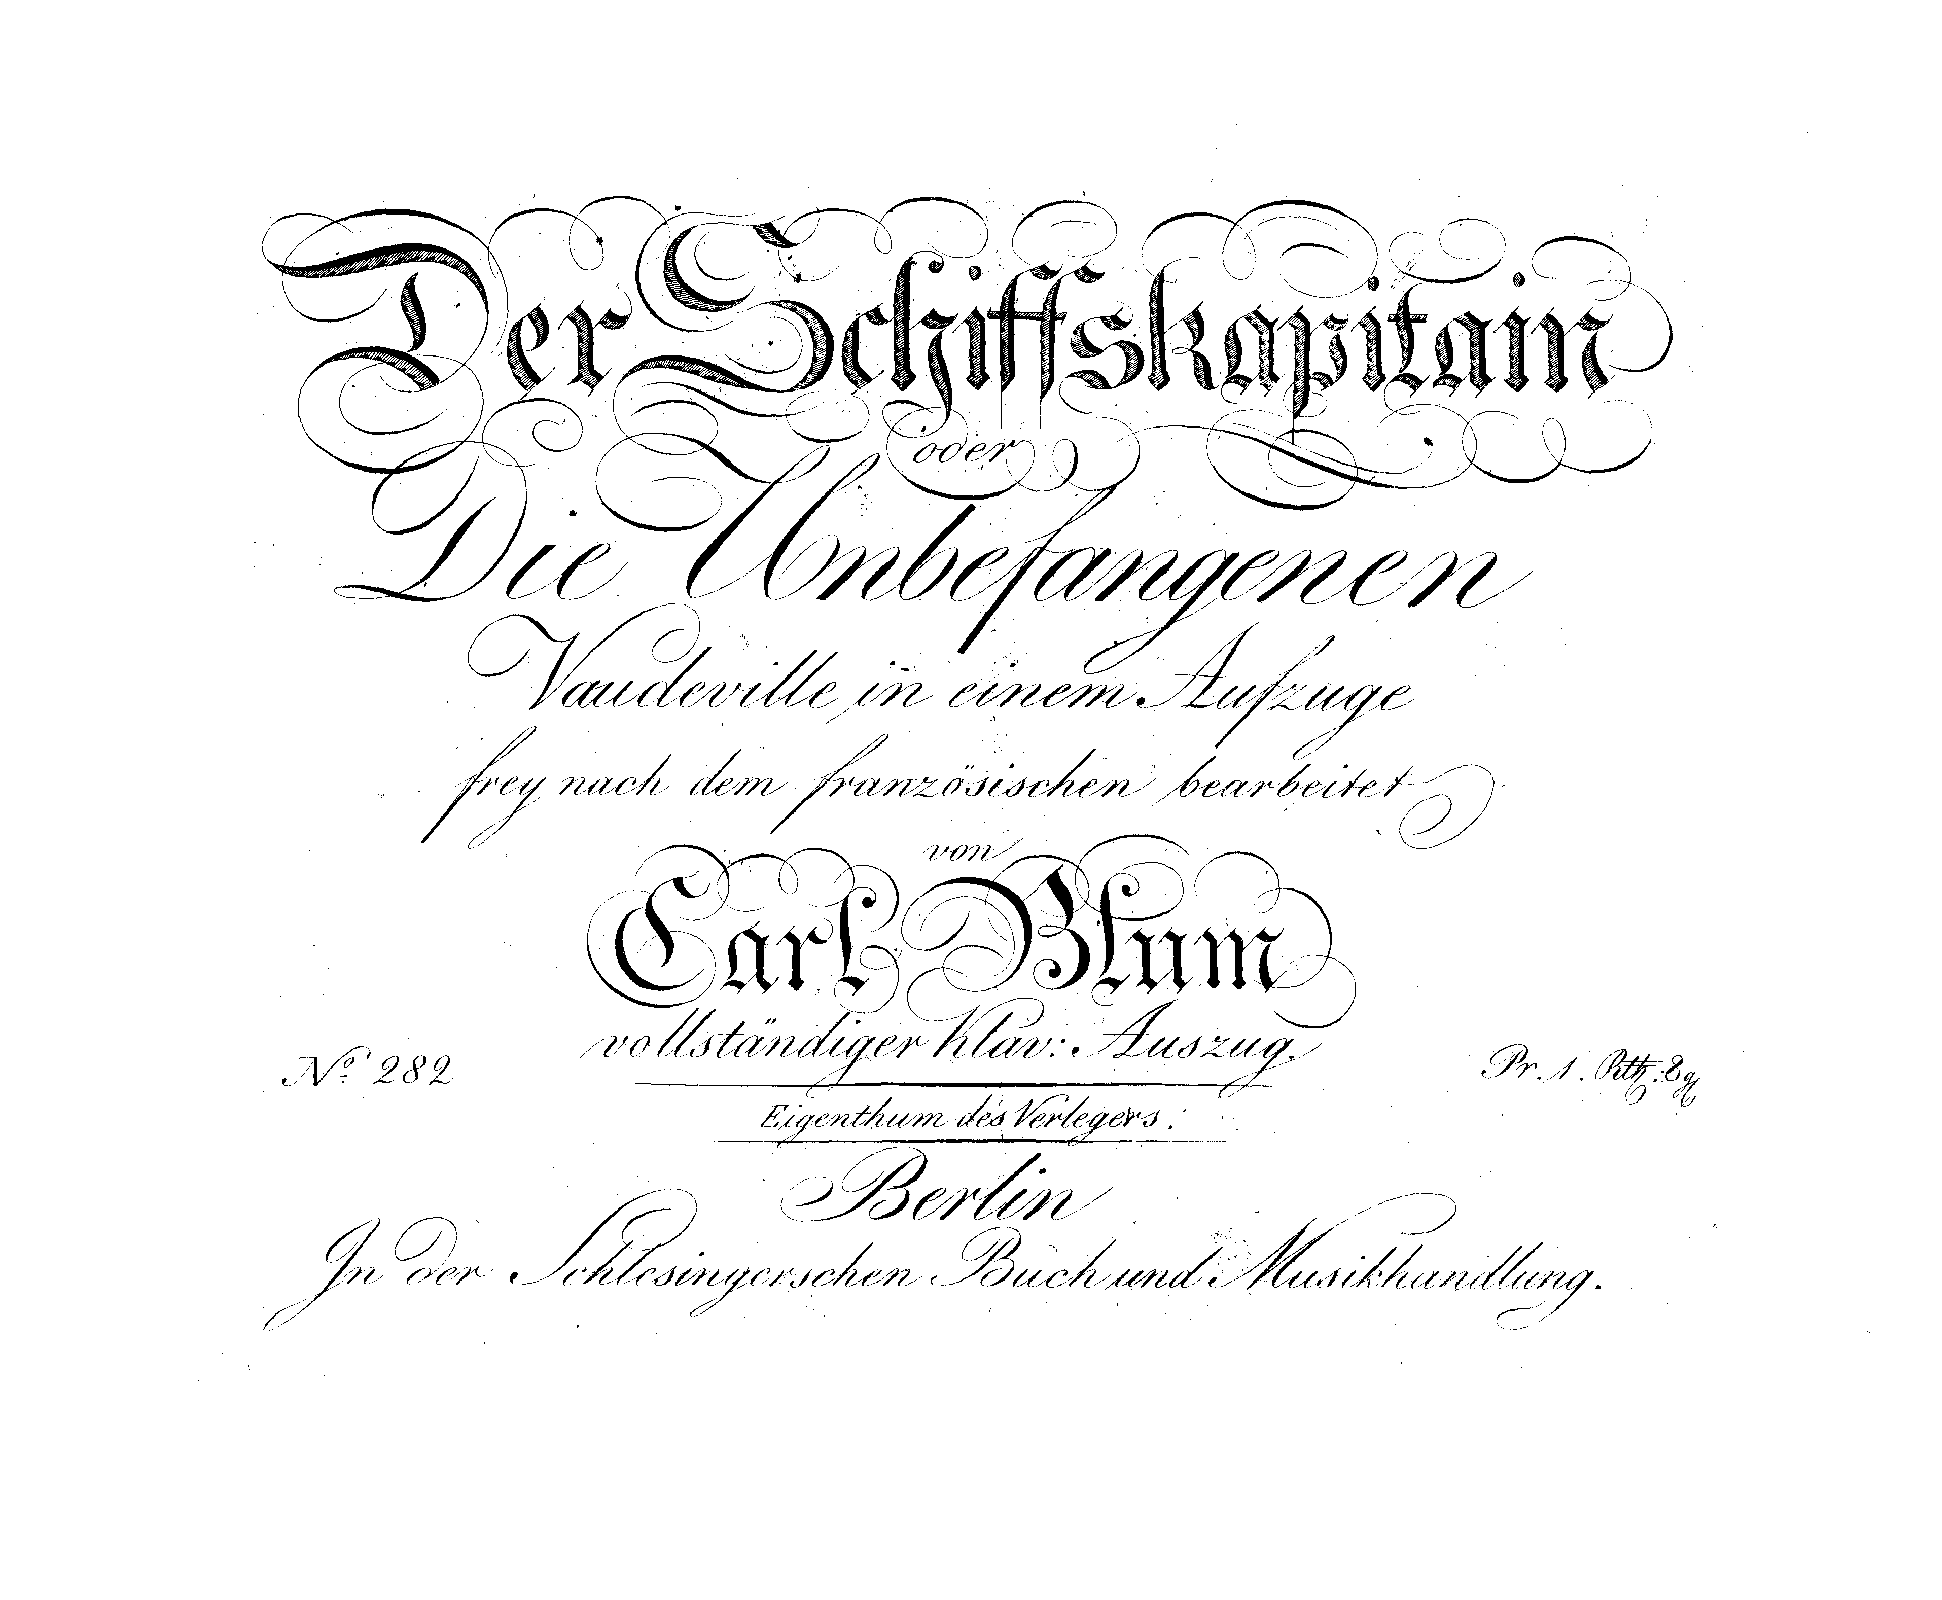 Der Schiffskapitain
oder
Die Unbefangenen
Vaudeville in einem Aufzuge
frey nach dem französischen bearbeitet
von
Carl Blum
vollständiger Klav: Auszug.
No. 282
Pr. 1. Rth:
Eigenthum des Verlegers.
Berlin
In der Schlesingerschen Buch und Musikhandlung.